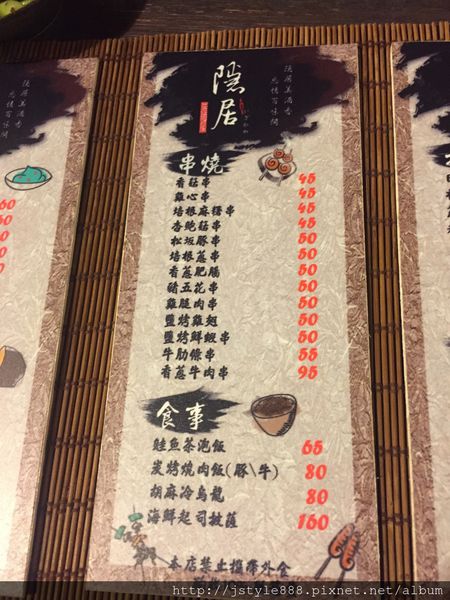 隱居美酒香
忘情百味閣
隱居
串燒
香菇串 45
雞心串 45
培根麻糬串 45
杏鮑菇串 45
松坂豚串 50
培根蔥串 50
香蔥肥腸 50
豬五花串 50
雞腿肉串 50
鹽烤雞翅 50
鹽烤鮮蝦串 50
牛肋條串 55
香蔥牛肉串 95
食事
鮭魚茶泡飯 65
炭烤燒肉飯(豚\牛) 80
胡麻冷烏龍 80
海鮮起司披薩 160
本店禁止攜帶外食
http://jstyle888.pixnet.net/album